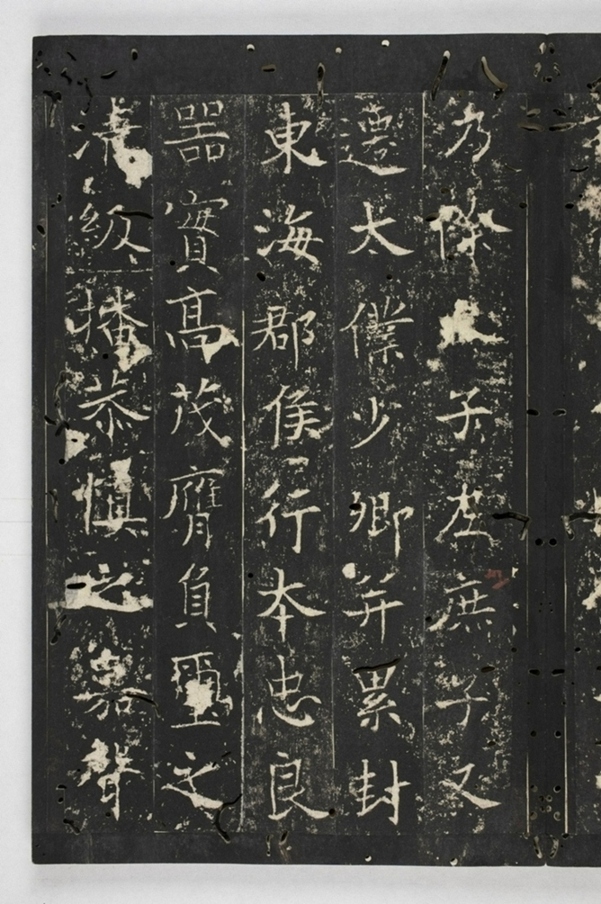 為子左庶子又
遷太僕少卿并累封
東海郡侯行本忠良
器實高茂膺負璽之
清級播恭慎之嘉聲